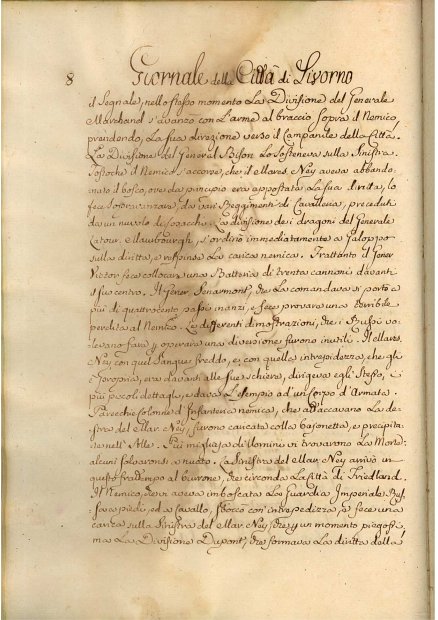 8 Giornale della Città di Livorno
il Segnale, nello stesso momento La Divisione del Generale
Marchand s'avanzò con L'arme al braccio sopra il Nemico,
prendendo, La sua direzione verso il Campanile della Città.
La Divisione del General Bison Lo sosteneva sulla Sinistra
Tostoche il Nemico s'accorse, che il Mares. Ney aveva abbando
nato il bosco, ove da principio era appostata La sua dritta, lo
fece da vari Reggimenti di Cavalleria, preceduti
da un nuvolo di Cosacchi: La divisione de i dragoni del Generale
Latour-Maubourgh, s'ordinò immediatamente a galoppo
sulla diritta, e respinse La carica nemica. Frattanto il Gener
Victor fece collocare una Batteria di trenta cannoni davanti
il suo centro. Il Gener. Senarmont, che La comandava si portò a
più di quattrocento passi inanzi, e fece provare una terribile
perdita al Nemico. Le differenti dimostrazioni, che i Russi vo
levano fare p operare una diversione furono inutili. Il Mares.
Ney con quel Sangue freddo, e con quella intrepidezza, che gli
è propria, era davanti alle sue schiere, dirigeva egli Stesso, i
più piccoli dettagli, e dava L'esempio ad un Corpo d'Armata.
Parecchie colonne d'Infanteria nemica, che attaccavano La de
stra del Mar. Ney, furono caricate colla bajonetta, e precipita
te nell' Alle. Più migliaja di Uomini vi trovarono La Morte
alcuni salvaronsi a nuoto. La Sinistra del Mar. Ney arrivò in
questo frattempo al burrone, che circonda La Città di Friedland.
Il Nemico, che vi aveva imboscata La Guardia Imperiale Rus
sa a piedi, ed a cavallo, sboccò con intrepidezza, e fece una
carica sulla Sinistra del Mar. Ney, che p un momento piegossi,
ma La Divisione Dupont, che formava La diritta della